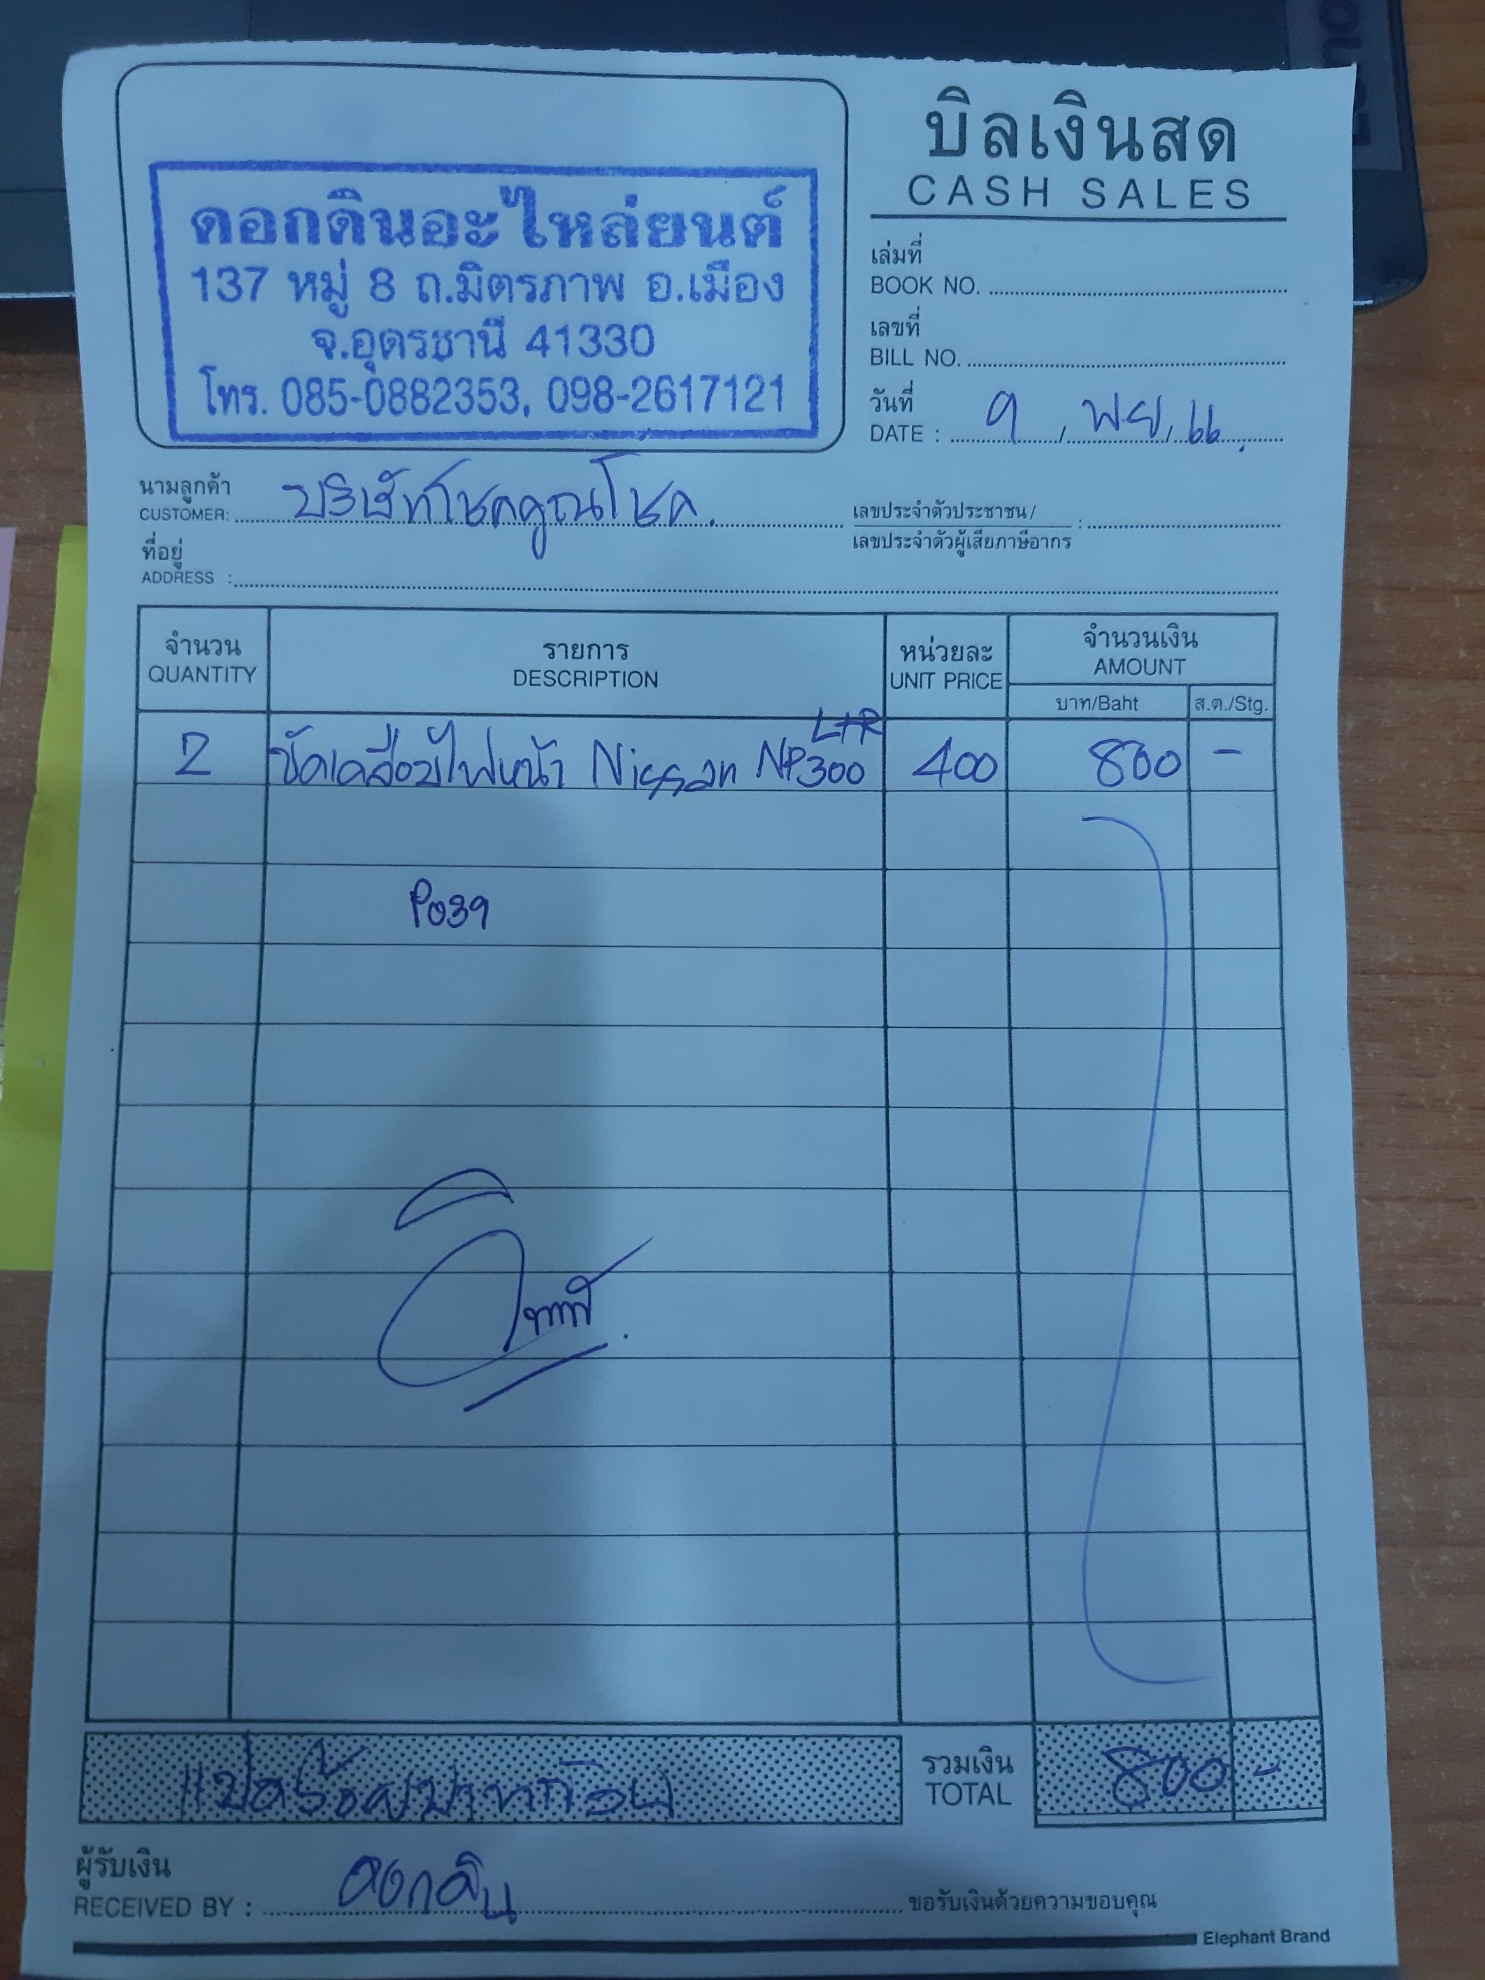 บิลเงินสด
CASH SALES
ดอกดินอะไหล่ยนต์
137 หมู่ 8 ถ.มิตรภาพ อ.เมือง
จ.อุดรธานี 41330
โทร. 085-0882353, 098-2617121
เล่มที่
BOOK NO.
เลขที่
BILL NO.
วันที่
DATE : 9 / พย / 66.
นามลูกค้า
CUSTOMER: บริษัทโชคคูณโชค.
เลขประจำตัวประชาชน /
เลขประจำตัวผู้เสียภาษีอากร :
ที่อยู่
ADDRESS :
จำนวน รายการ หน่วยละ จำนวนเงิน
QUANTITY DESCRIPTION UNIT PRICE AMOUNT
บาท/Baht ส.ต./Stg.
L+R
2 ขัดเคลือบไฟหน้า Nissan NP300 400 800 -
P039
แปดร้อยบาทถ้วน
รวมเงิน
TOTAL 800 -
ผู้รับเงิน
RECEIVED BY : ดอกดิน ขอรับเงินด้วยความขอบคุณ
Elephant Brand